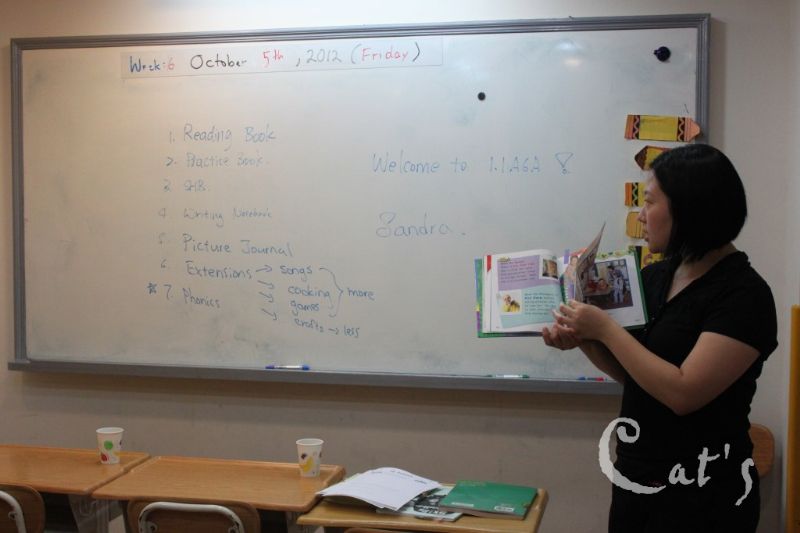 Week:6 October 5th, 2012 (Friday)
1. Reading Book
2. Practice Book.
3. SRB.
4. Writing Notebook
5. Picture Journal
6. Extensions → songs
→ cooking } more
→ games
→ crafts → less
☆ 7. Phonics
Welcome to 1.1.A6A !
Sandra.
Cat's